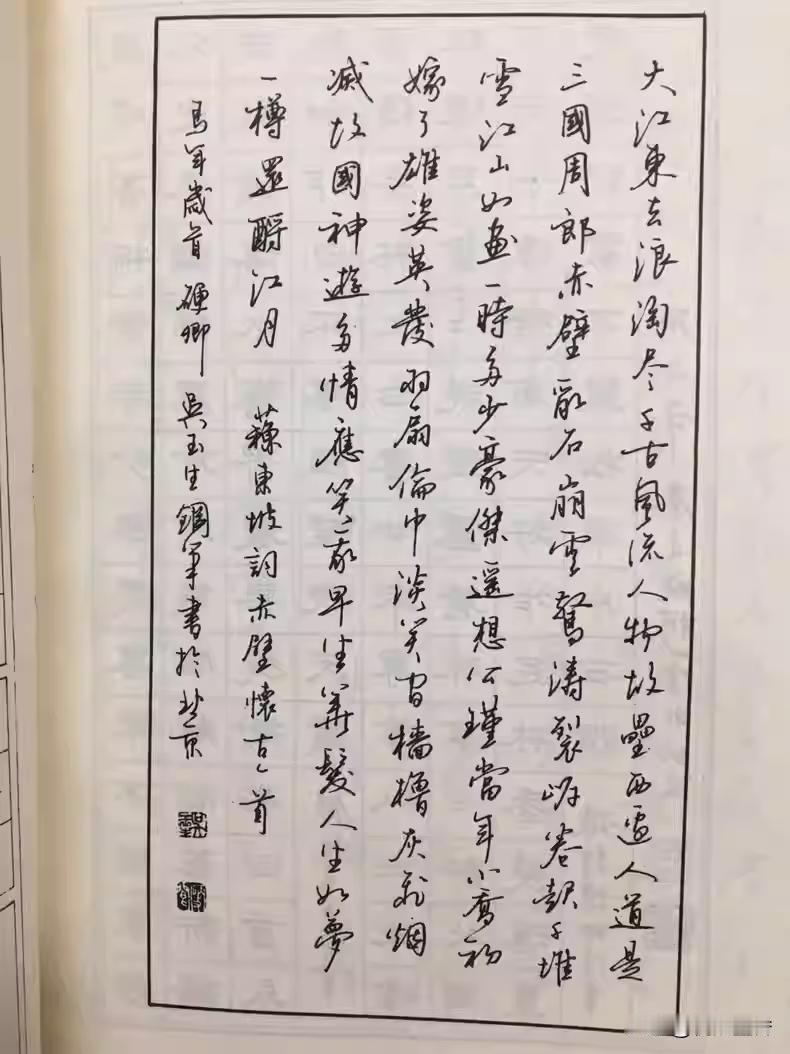 大江東去浪淘尽千古風流人物故壘西邊人道是
三國周郎赤壁亂石崩雲驚濤裂岸卷起千堆
雪江山如画一時多少豪傑遥想公瑾當年小喬初
嫁了雄姿英發羽扇倫巾淡笑間檣櫓灰飛烟
滅故國神遊多情應笑我早生華髮人生如夢
一樽還酹江月 蘇東坡詞赤壁懷古一首
馬年歲首硬卿吳玉生鋼筆書於北京